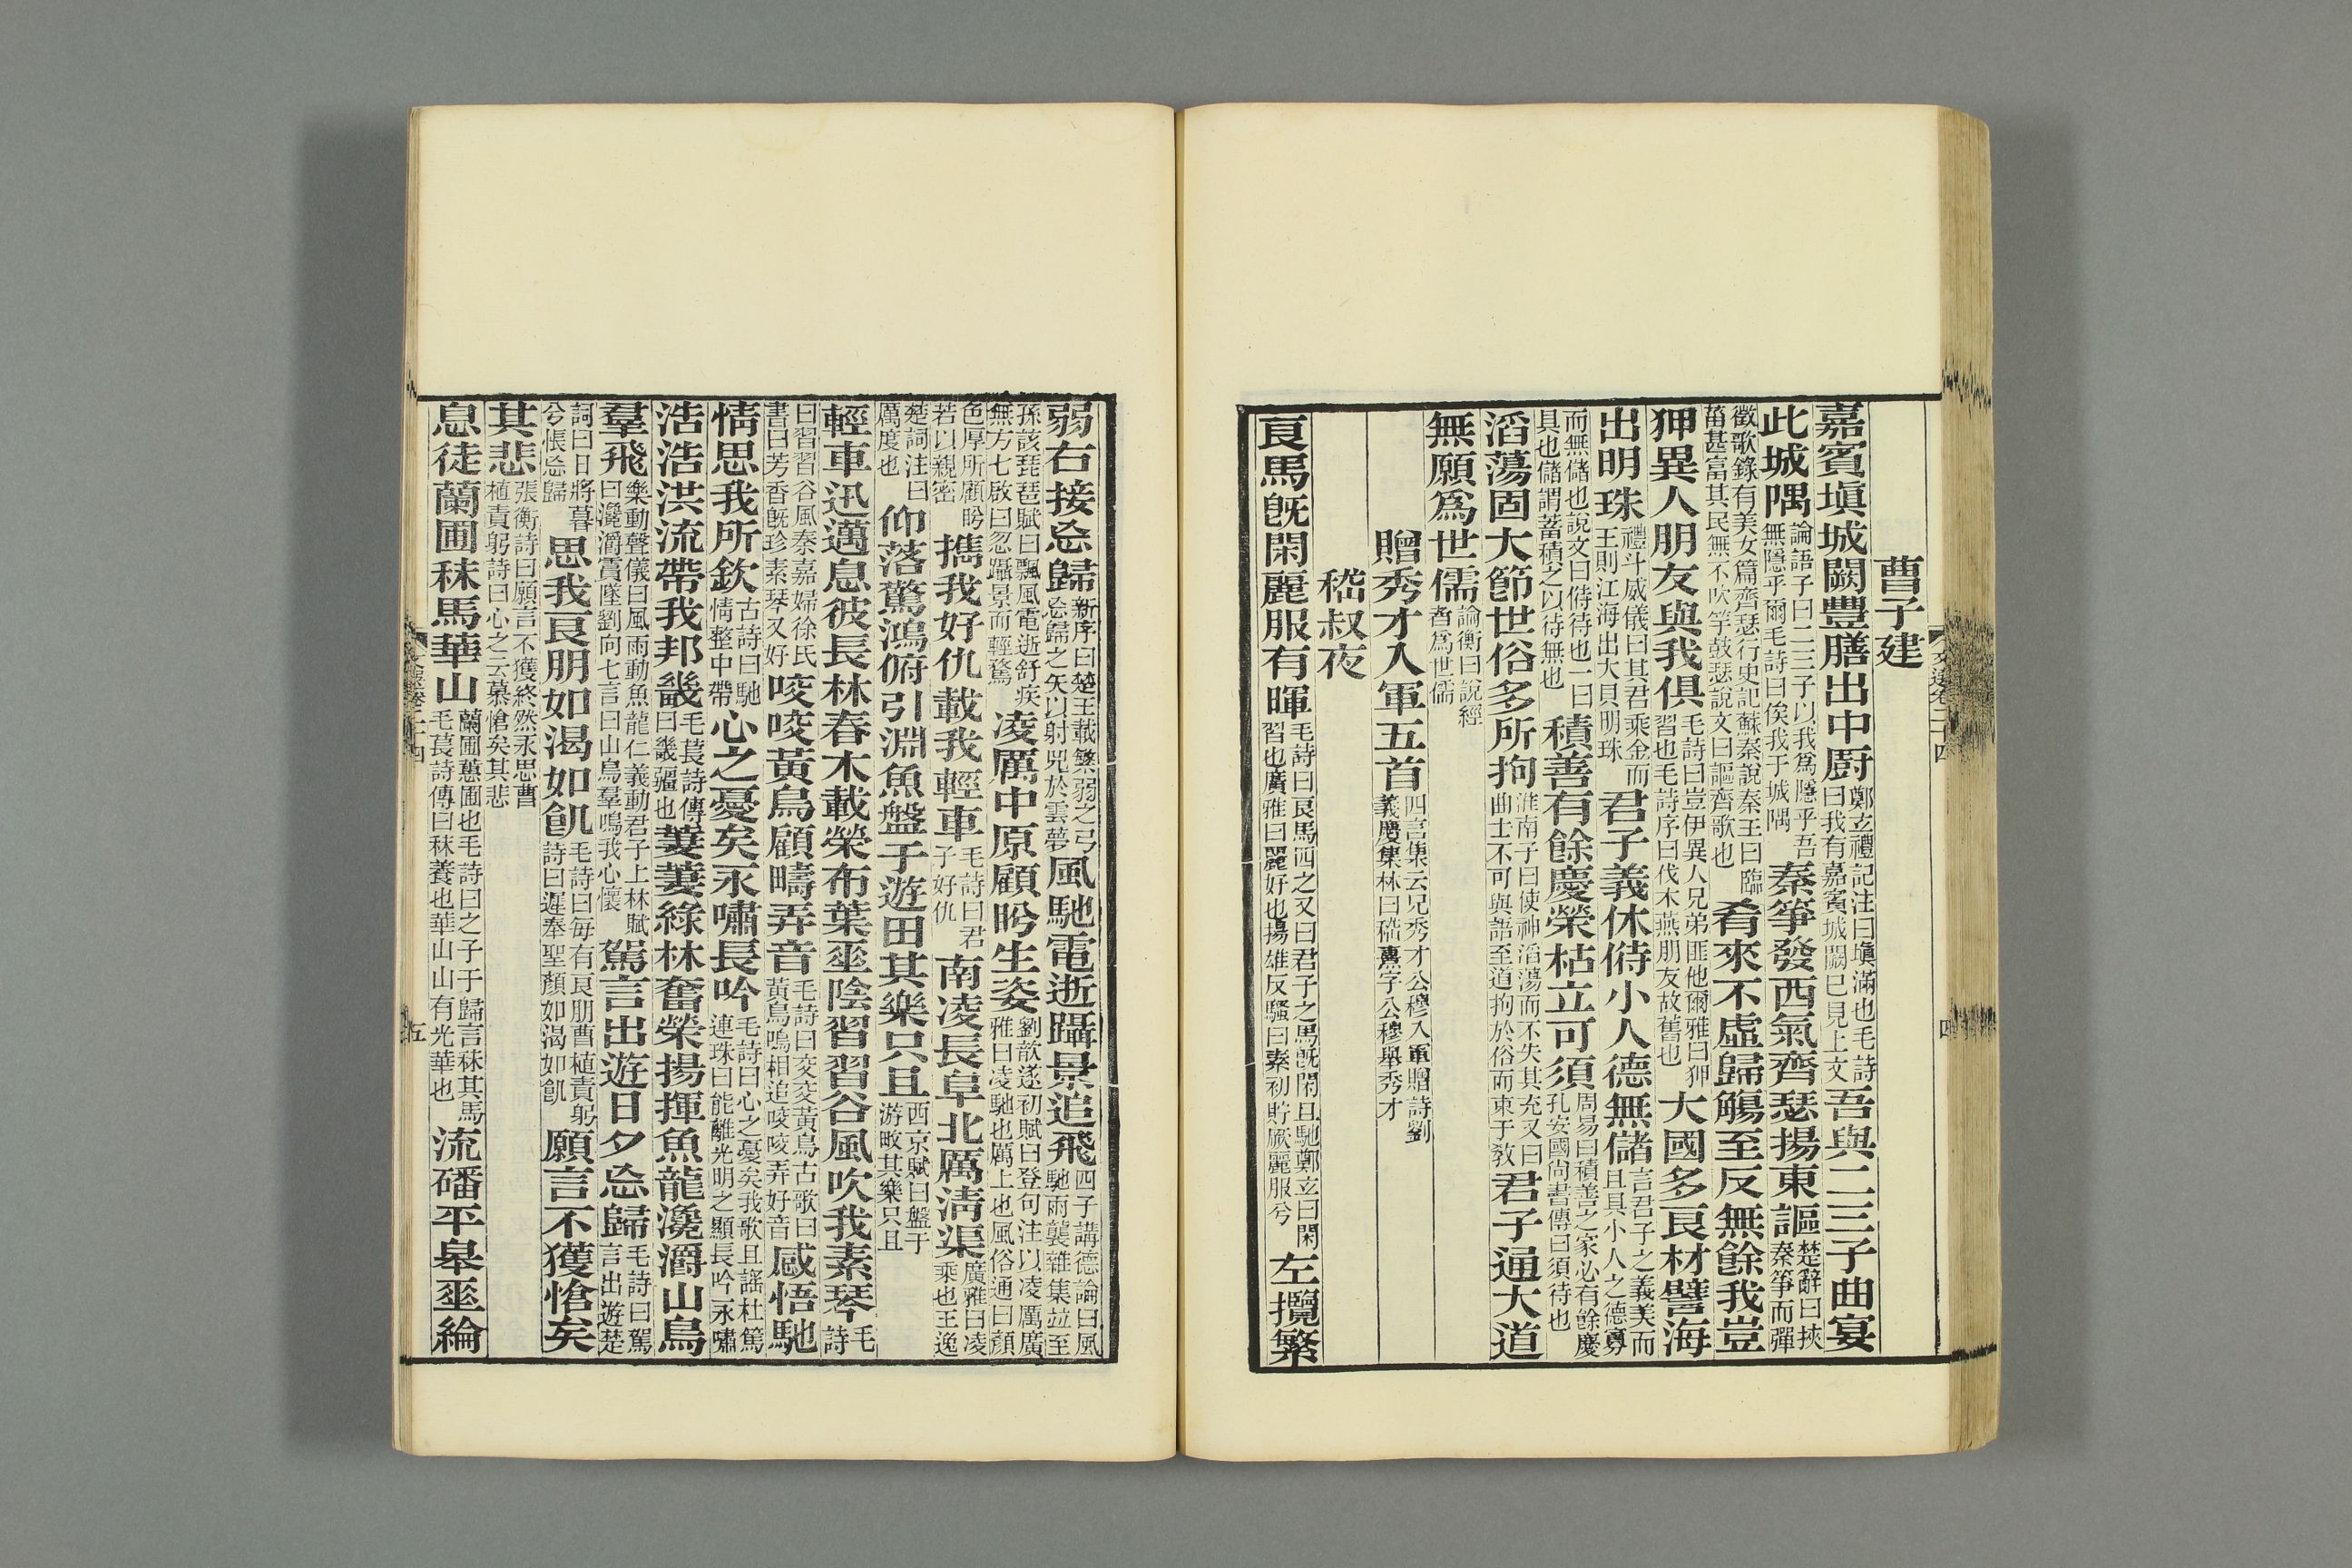 曹子建
嘉賓塡城闕豐膳出中厨鄭玄禮記注曰塡滿也毛詩曰我有嘉賓城闕已見上文吾與二三子曲宴
此城隅論語子曰二三子以我爲隱乎吾無隱乎爾毛詩曰俟我于城隅秦箏發西氣齊瑟揚東謳楚辭曰挾秦箏而彈
徵歌錄有美女篇齊瑟行史記蘇秦說秦王曰臨菑甚富其民無不吹竽鼓瑟說文曰謳齊歌也肴來不虛歸觴至反無餘我豈
狎異人朋友與我俱毛詩曰豈伊異人兄弟匪他爾雅曰狎習也毛詩序曰伐木燕朋友故舊也大國多良材譬海
出明珠禮斗威儀曰其君乘金而王則江海出大貝明珠君子義休偫小人德無儲言君子之義美而且具小人之德寡
而無儲也說文曰偫待也一曰具也儲謂蓄積之以待無也積善有餘慶榮枯立可須周易曰積善之家必有餘慶孔安國尚書傳曰須待也
滔蕩固大節世俗多所拘淮南子曰使神滔蕩而不失其充又曰曲士不可與語至道拘於俗而束于敎君子通大道
無願爲世儒論衡曰說經者爲世儒
贈秀才入軍五首四言集云兄秀才公穆入軍贈詩劉義慶集林曰嵇熹字公穆舉秀才
嵇叔夜
良馬旣閑麗服有暉毛詩曰良馬四之又曰君子之馬旣閑且馳鄭玄曰閑習也廣雅曰麗好也揚雄反騷曰素初貯厥麗服兮左攬繁
弱右接忘歸新序曰楚王載繁弱之弓忘歸之矢以射兕於雲夢風馳電逝躡景追飛四子講德論曰風馳雨襲雜集並至
孫該琵琶賦曰飄風電逝舒疾無方七啟曰忽躡景而輕騖凌厲中原顧盼生姿劉歆遂初賦曰登句注以凌厲廣雅曰凌馳也厲上也風俗通曰顏
色厚所顧盼若以親密攜我好仇載我輕車毛詩曰君子好仇南凌長阜北厲淸渠廣雅曰凌乘也王逸
楚詞注曰厲度也仰落驚鴻俯引淵魚盤于遊田其樂只且西京賦曰盤于游畋其樂只且
輕車迅邁息彼長林春木載榮布葉垂陰習習谷風吹我素琴毛詩
曰習習谷風秦嘉婦徐氏書曰芳香旣珍素琴又好咬咬黃鳥顧疇弄音毛詩曰交交黃鳥古歌曰黃鳥鳴相追咬咬弄好音感悟馳
情思我所欽古詩曰馳情整中帶心之憂矣永嘯長吟毛詩曰心之憂矣我歌且謠杜篤連珠曰能離光明之顯長吟永嘯
浩浩洪流帶我邦畿毛萇詩傳曰畿疆也萋萋綠林奮榮揚揮魚龍瀺灂山鳥
羣飛樂動聲儀曰風雨動魚龍仁義動君子上林賦曰瀺灂霣墜劉向七言曰山鳥羣鳴我心懷駕言出遊日夕忘歸毛詩曰駕言出遊楚
詞曰日將暮兮悵忘歸思我良朋如渴如飢毛詩曰每有良朋曹植責躬詩曰遲奉聖顏如渴如飢願言不獲愴矣
其悲張衡詩曰願言不獲終然永思曹植責躬詩曰心之云慕愴矣其悲
息徒蘭圃秣馬華山蘭圃蕙圃也毛詩曰之子于歸言秣其馬毛萇詩傳曰秣養也華山山有光華也流磻平皋垂綸